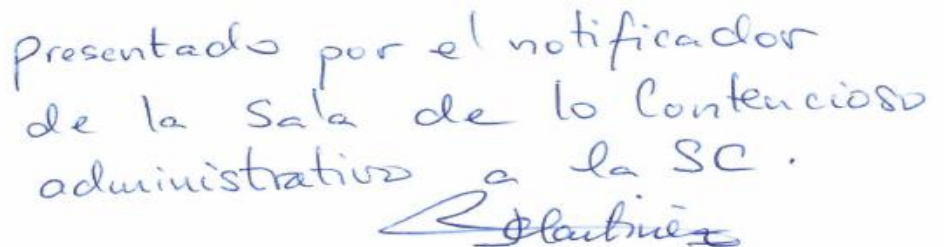 Presentado por el notificador
de la Sala de lo Contencioso
administrativo a la SC.